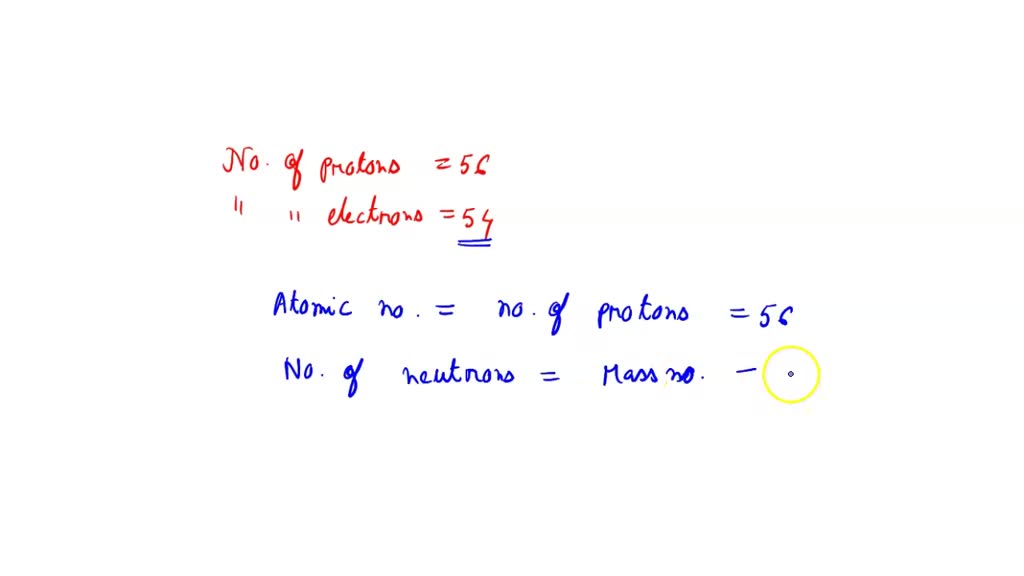 No. of protons = 56
" " electrons = 54
Atomic no. = no. of protons = 56
No. of neutrons = Mass no. -